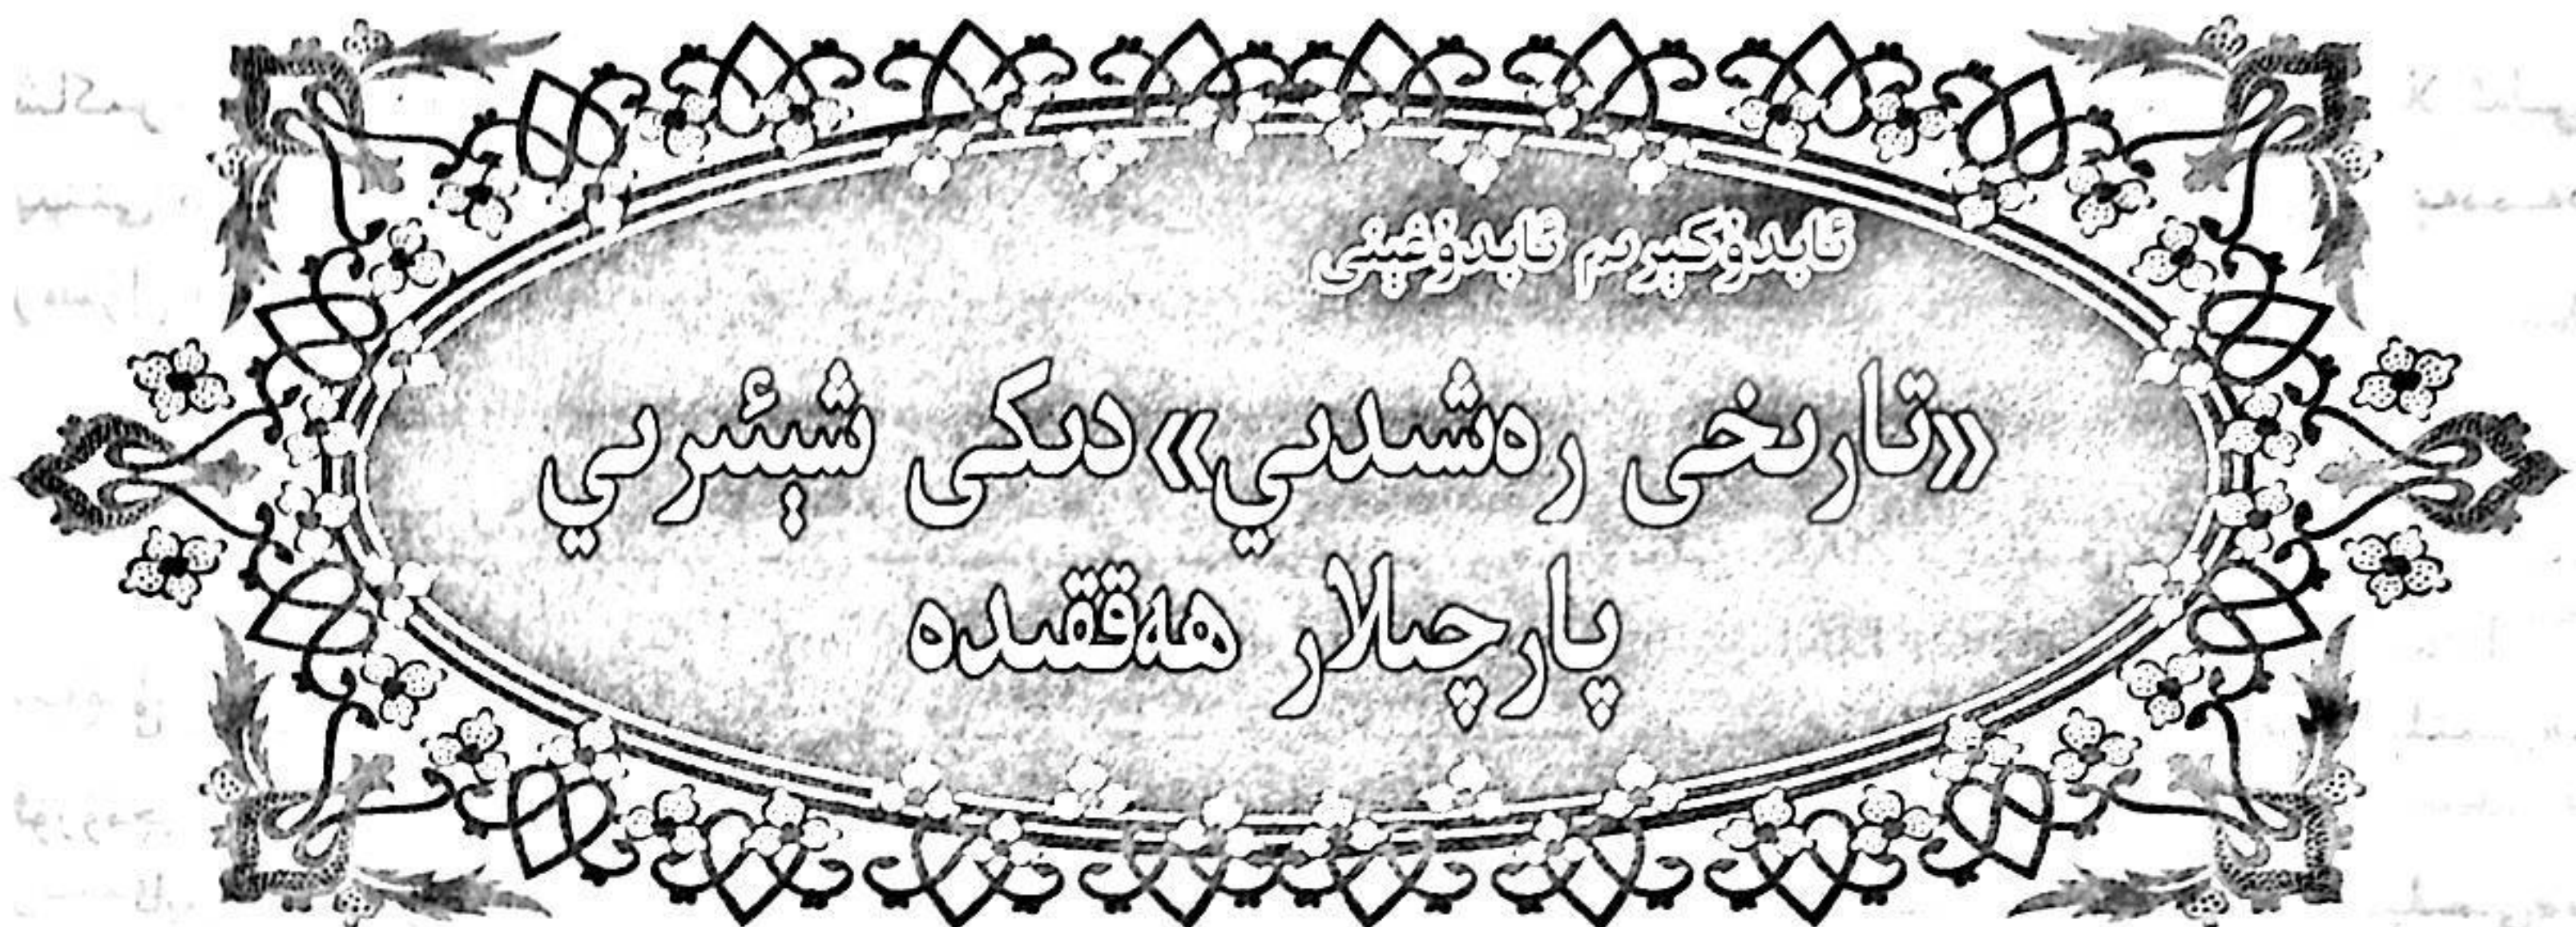 ئابدۇكېرىم ئابدۇغېنى
«تارىخى رەشىدىي»دىكى شېئىرىي
پارچىلار ھەققىدە